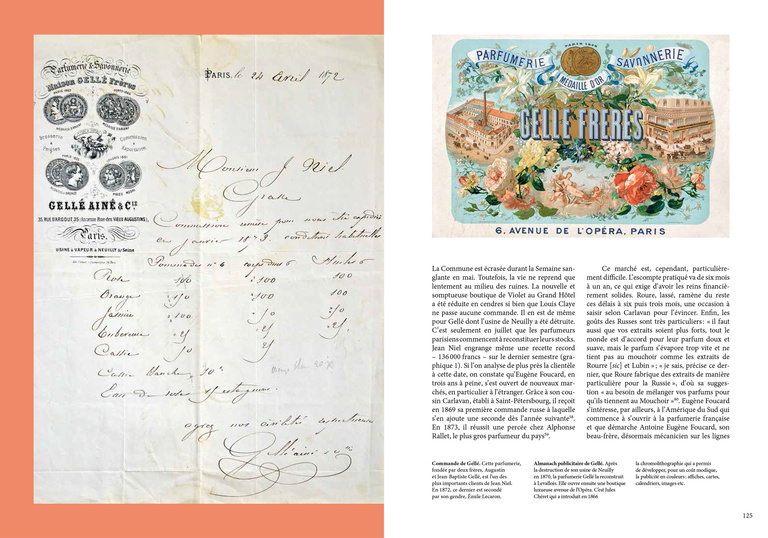 Parfumerie & Savonnerie
Maison GELLÉ Frères
GELLÉ AINÉ & Cie
35, RUE D'ARGOUT, 35 (Ancienne Rue des VIEUX AUGUSTINS)
Paris.
USINE A VAPEUR A NEUILLY s/ Seine
PARIS, le 24 Avril 1872
Monsieur J Niel
Grasse
Commission remise pour nous être expédiée
en janvier 1873. conditions habituelles
Pommades nº 6 corps durs 6 Huiles 6
Rose 100 100 100
Orange 100 100
Jasmin 100
Tubéreuse 25 25 25
Cassie 50 25
agréez nos civilités
PARFUMERIE SAVONNERIE
MÉDAILLE D'OR
GELLÉ FRÈRES
6, AVENUE DE L'OPÉRA, PARIS
La Commune est écrasée durant la Semaine san-
glante en mai. Toutefois, la vie ne reprend que
lentement au milieu des ruines. La nouvelle et
somptueuse boutique de Violet au Grand Hôtel
a été réduite en cendres si bien que Louis Claye
ne passe aucune commande. Il en est de même
pour Gellé dont l'usine de Neuilly a été détruite.
C'est seulement en juillet que les parfumeurs
parisiens commencent à reconstituer leurs stocks.
Jean Niel engrange même une recette record
– 136 000 francs – sur le dernier semestre (gra-
phique 1). Si l'on analyse de plus près la clientèle
à cette date, on constate qu'Eugène Foucard, en
trois ans à peine, s'est ouvert de nouveaux mar-
chés, en particulier à l'étranger. Grâce à son cou-
sin Carlavan, établi à Saint-Pétersbourg, il reçoit
en 1869 sa première commande russe à laquelle
s'en ajoute une seconde dès l'année suivante
En 1873, il réussit une percée chez Alphonse
Rallet, le plus gros parfumeur du pays
Ce marché est, cependant, particulière-
ment difficile. L'escompte pratiqué va de six mois
à un an, ce qui exige d'avoir les reins financiè-
rement solides. Roure, lassé, ramène du reste
ces délais à six puis trois mois, une occasion à
saisir selon Carlavan pour l'évincer. Enfin, les
goûts des Russes sont très particuliers : « il faut
aussi que vos extraits soient plus forts, tout le
monde est d'accord pour leur parfum doux et
suave, mais le parfum s'évapore trop vite et ne
tient pas au mouchoir comme les extraits de
Rourre [sic] et Lubin » ; « je sais, précise ce der-
nier, que Roure fabrique des extraits de manière
particulière pour la Russie », d'où sa sugges-
tion « au besoin de mélanger vos parfums pour
qu'ils tiennent au Mouchoir ». Eugène Foucard
s'intéresse, par ailleurs, à l'Amérique du Sud qui
commence à s'ouvrir à la parfumerie française
et que démarche Antoine Eugène Foucard, son
beau-frère, désormais mécanicien sur les lignes
Commande de Gellé. Cette parfumerie,
fondée par deux frères, Augustin
et Jean-Baptiste Gellé, est l'un des
plus importants clients de Jean Niel.
En 1872, ce dernier est secondé
par son gendre, Émile Lecaron.
Almanach publicitaire de Gellé. Après
la destruction de son usine de Neuilly
en 1870, la parfumerie Gellé la reconstruit
à Levallois. Elle ouvre ensuite une boutique
luxueuse avenue de l'Opéra. C'est Jules
Chéret qui a introduit en 1866
la chromolithographie qui a permis
de développer, pour un coût modique,
la publicité en couleurs : affiches, cartes,
calendriers, images etc.
125